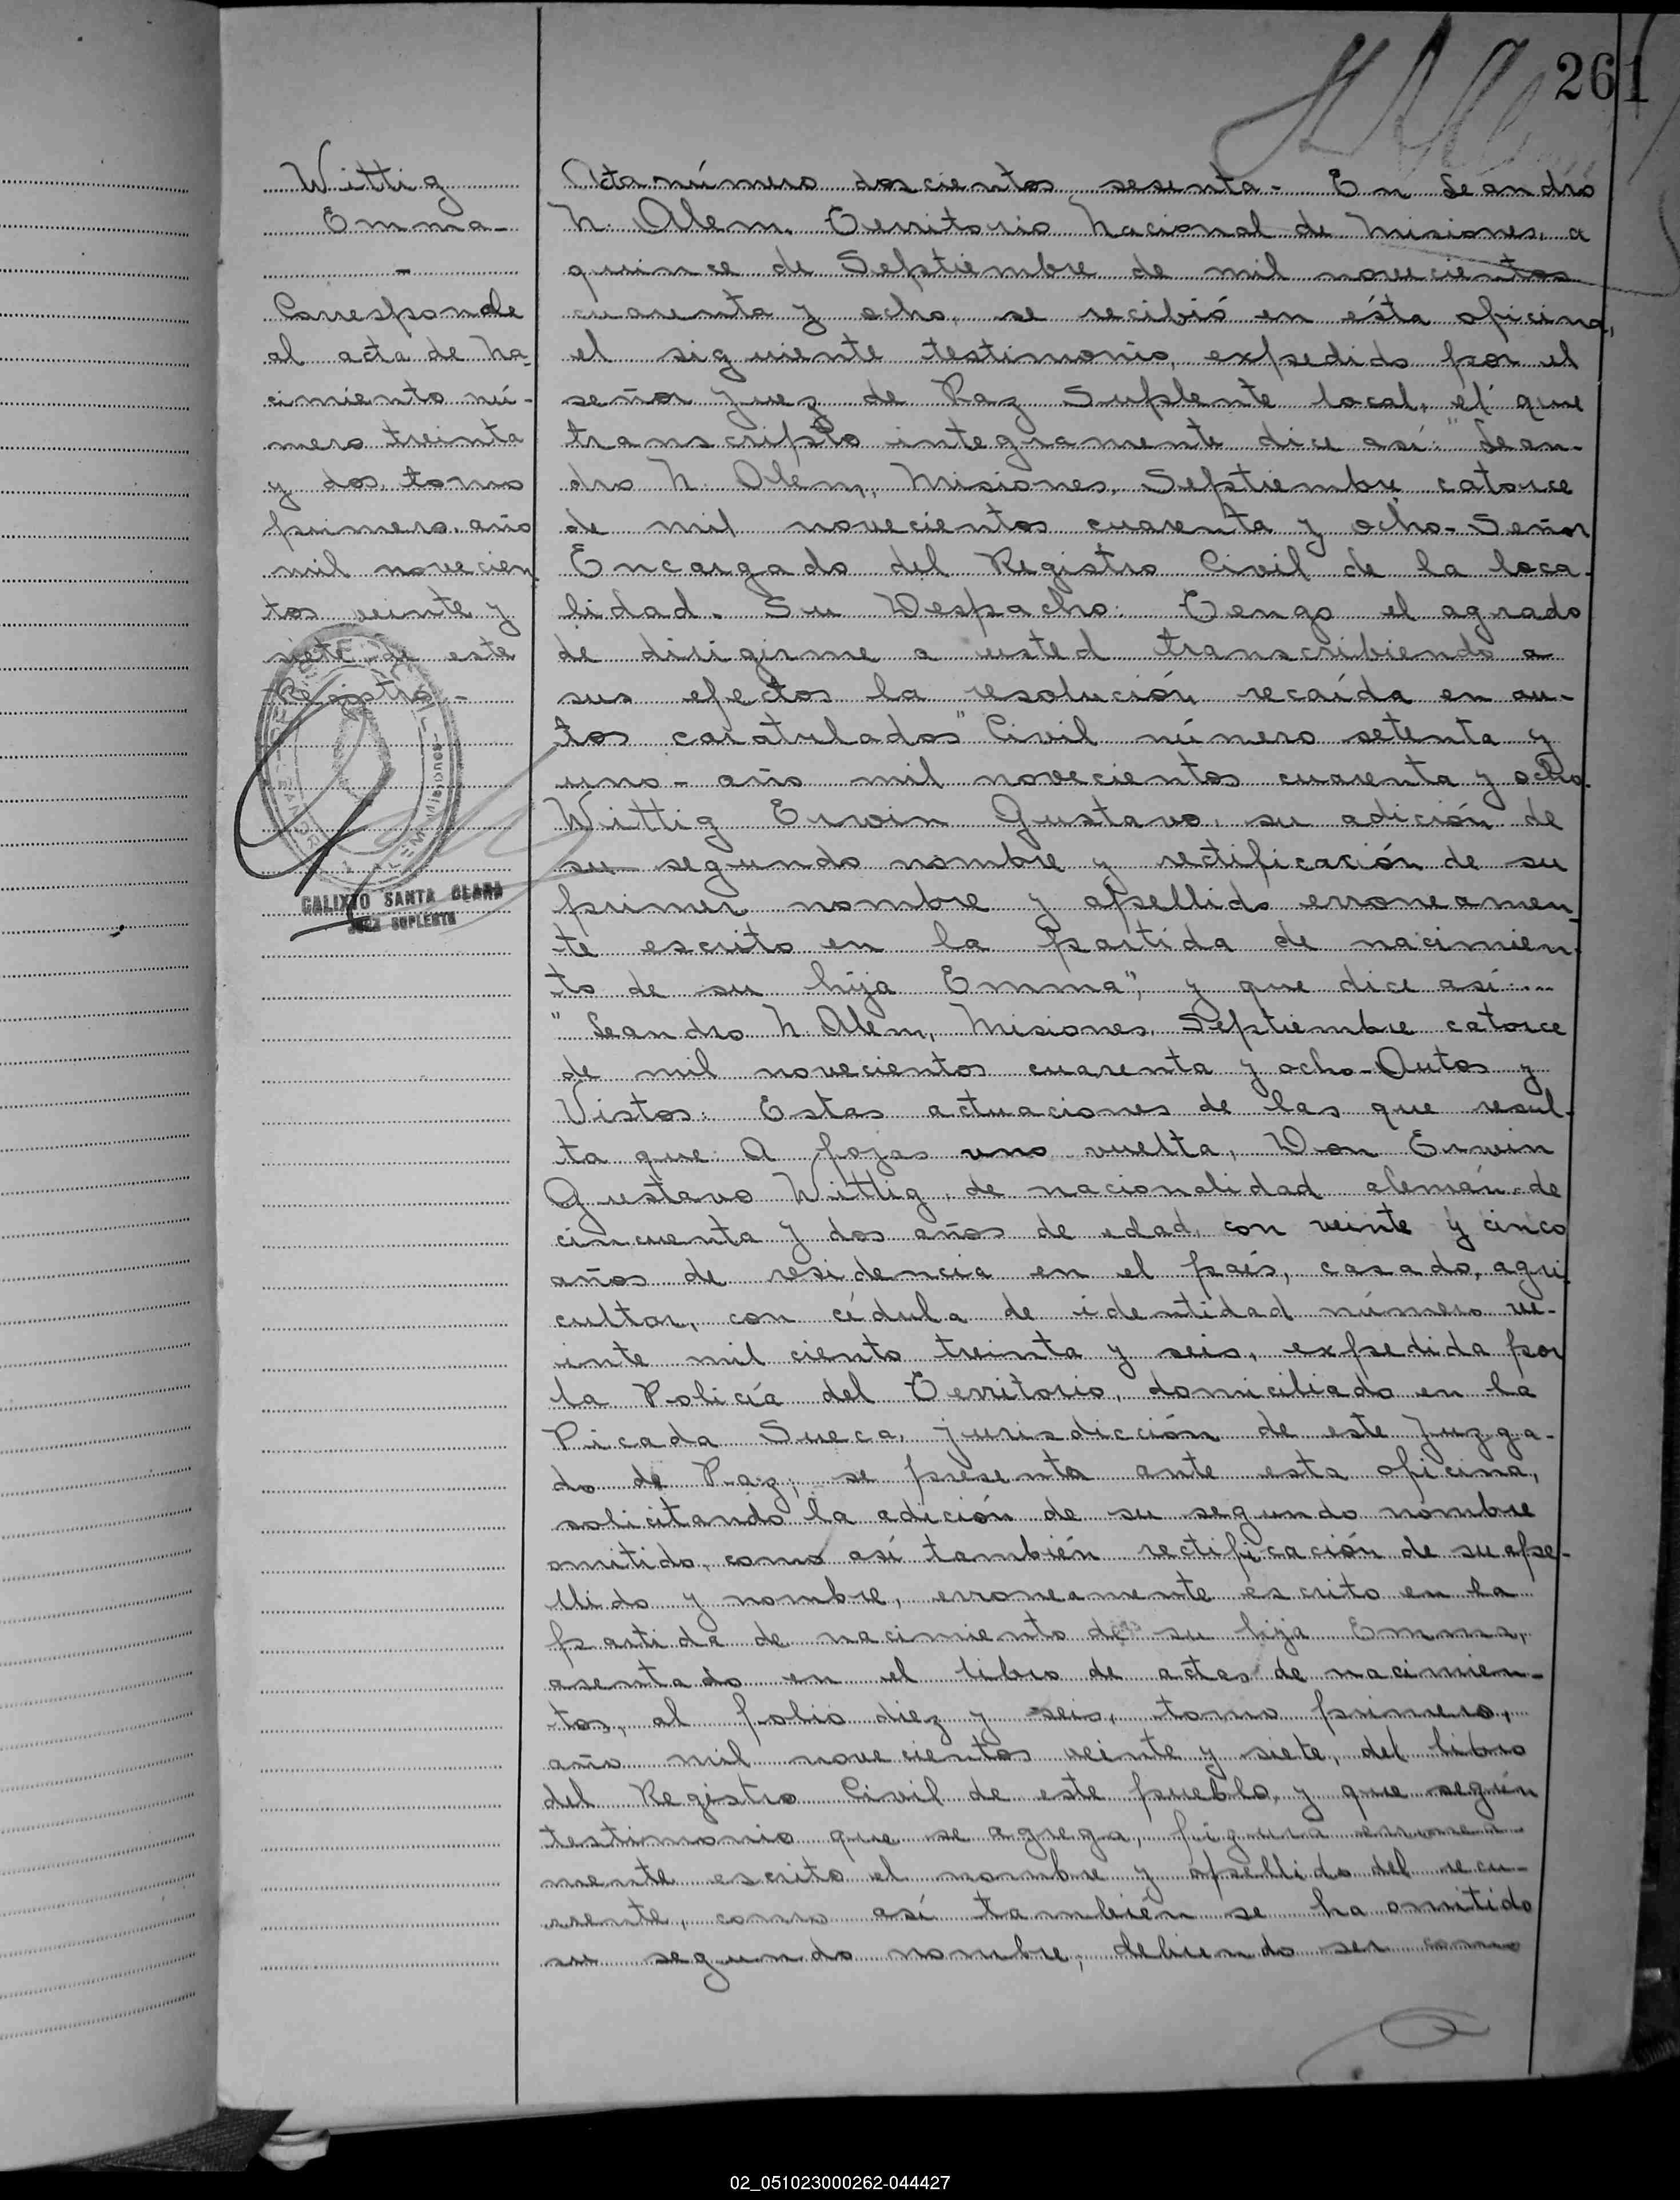 261
Wittig
Emma-
-
Corresponde
al acta de na-
cimiento nú-
mero treinta
y dos, tomo
primero, año
mil novecien
tos veinte y
siete de este
Registro.-
CALIXTO SANTA CLARA
JUEZ SUPLENTE
Acta número doscientos sesenta- En Leandro
N. Alem, Territorio Nacional de Misiones, a
quince de Septiembre de mil novecientos
cuarenta y ocho, se recibió en ésta oficina,
el siguiente testimonio, expedido por el
señor Juez de Paz Suplente local, el que
transcripto integramente dice así:" Lean-
dro N. Alem, Misiones, Septiembre catorce
de mil novecientos cuarenta y ocho- Señor
Encargado del Registro Civil de la loca-
lidad. Su Despacho: Tengo el agrado
de dirigirme a usted transcribiendo a
sus efectos la resolución recaída en au-
tos caratulados "Civil número setenta y
uno- año mil novecientos cuarenta y ocho.
Wittig Erwin Gustavo, su adición de
su segundo nombre y rectificación de su
primer nombre y apellido erroneamen-
te escrito en la partida de nacimien-
to de su hija Emma", y que dice así:...
" Leandro N. Alem, Misiones, Septiembre catorce
de mil novecientos cuarenta y ocho- Autos y
Vistos: Estas actuaciones de las que resul-
ta que: A fojas uno vuelta, Don Erwin
Gustavo Wittig, de nacionalidad alemán, de
cincuenta y dos años de edad, con veinte y cinco
años de residencia en el país, casado, agri
cultor, con cédula de identidad número ve-
inte mil ciento treinta y seis, expedida por
la Policía del Territorio, domiciliado en la
Picada Sueca, jurisdicción de este Juzga-
do de Paz; se presenta ante esta oficina,
solicitando la adición de su segundo nombre
omitido, como así también rectificación de su ape-
llido y nombre, erroneamente escrito en la
partida de nacimiento de su hija Emma,
asentado en el libro de actas de nacimien-
tos, al folio diez y seis, tomo primero,
año mil novecientos veinte y siete, del libro
del Registro Civil de este pueblo, y que según
testimonio que se agrega, figura erronea-
mente escrito el nombre y apellido del recu-
rrente, como así también se ha omitido
su segundo nombre, debiendo ser como
02_051023000262-044427